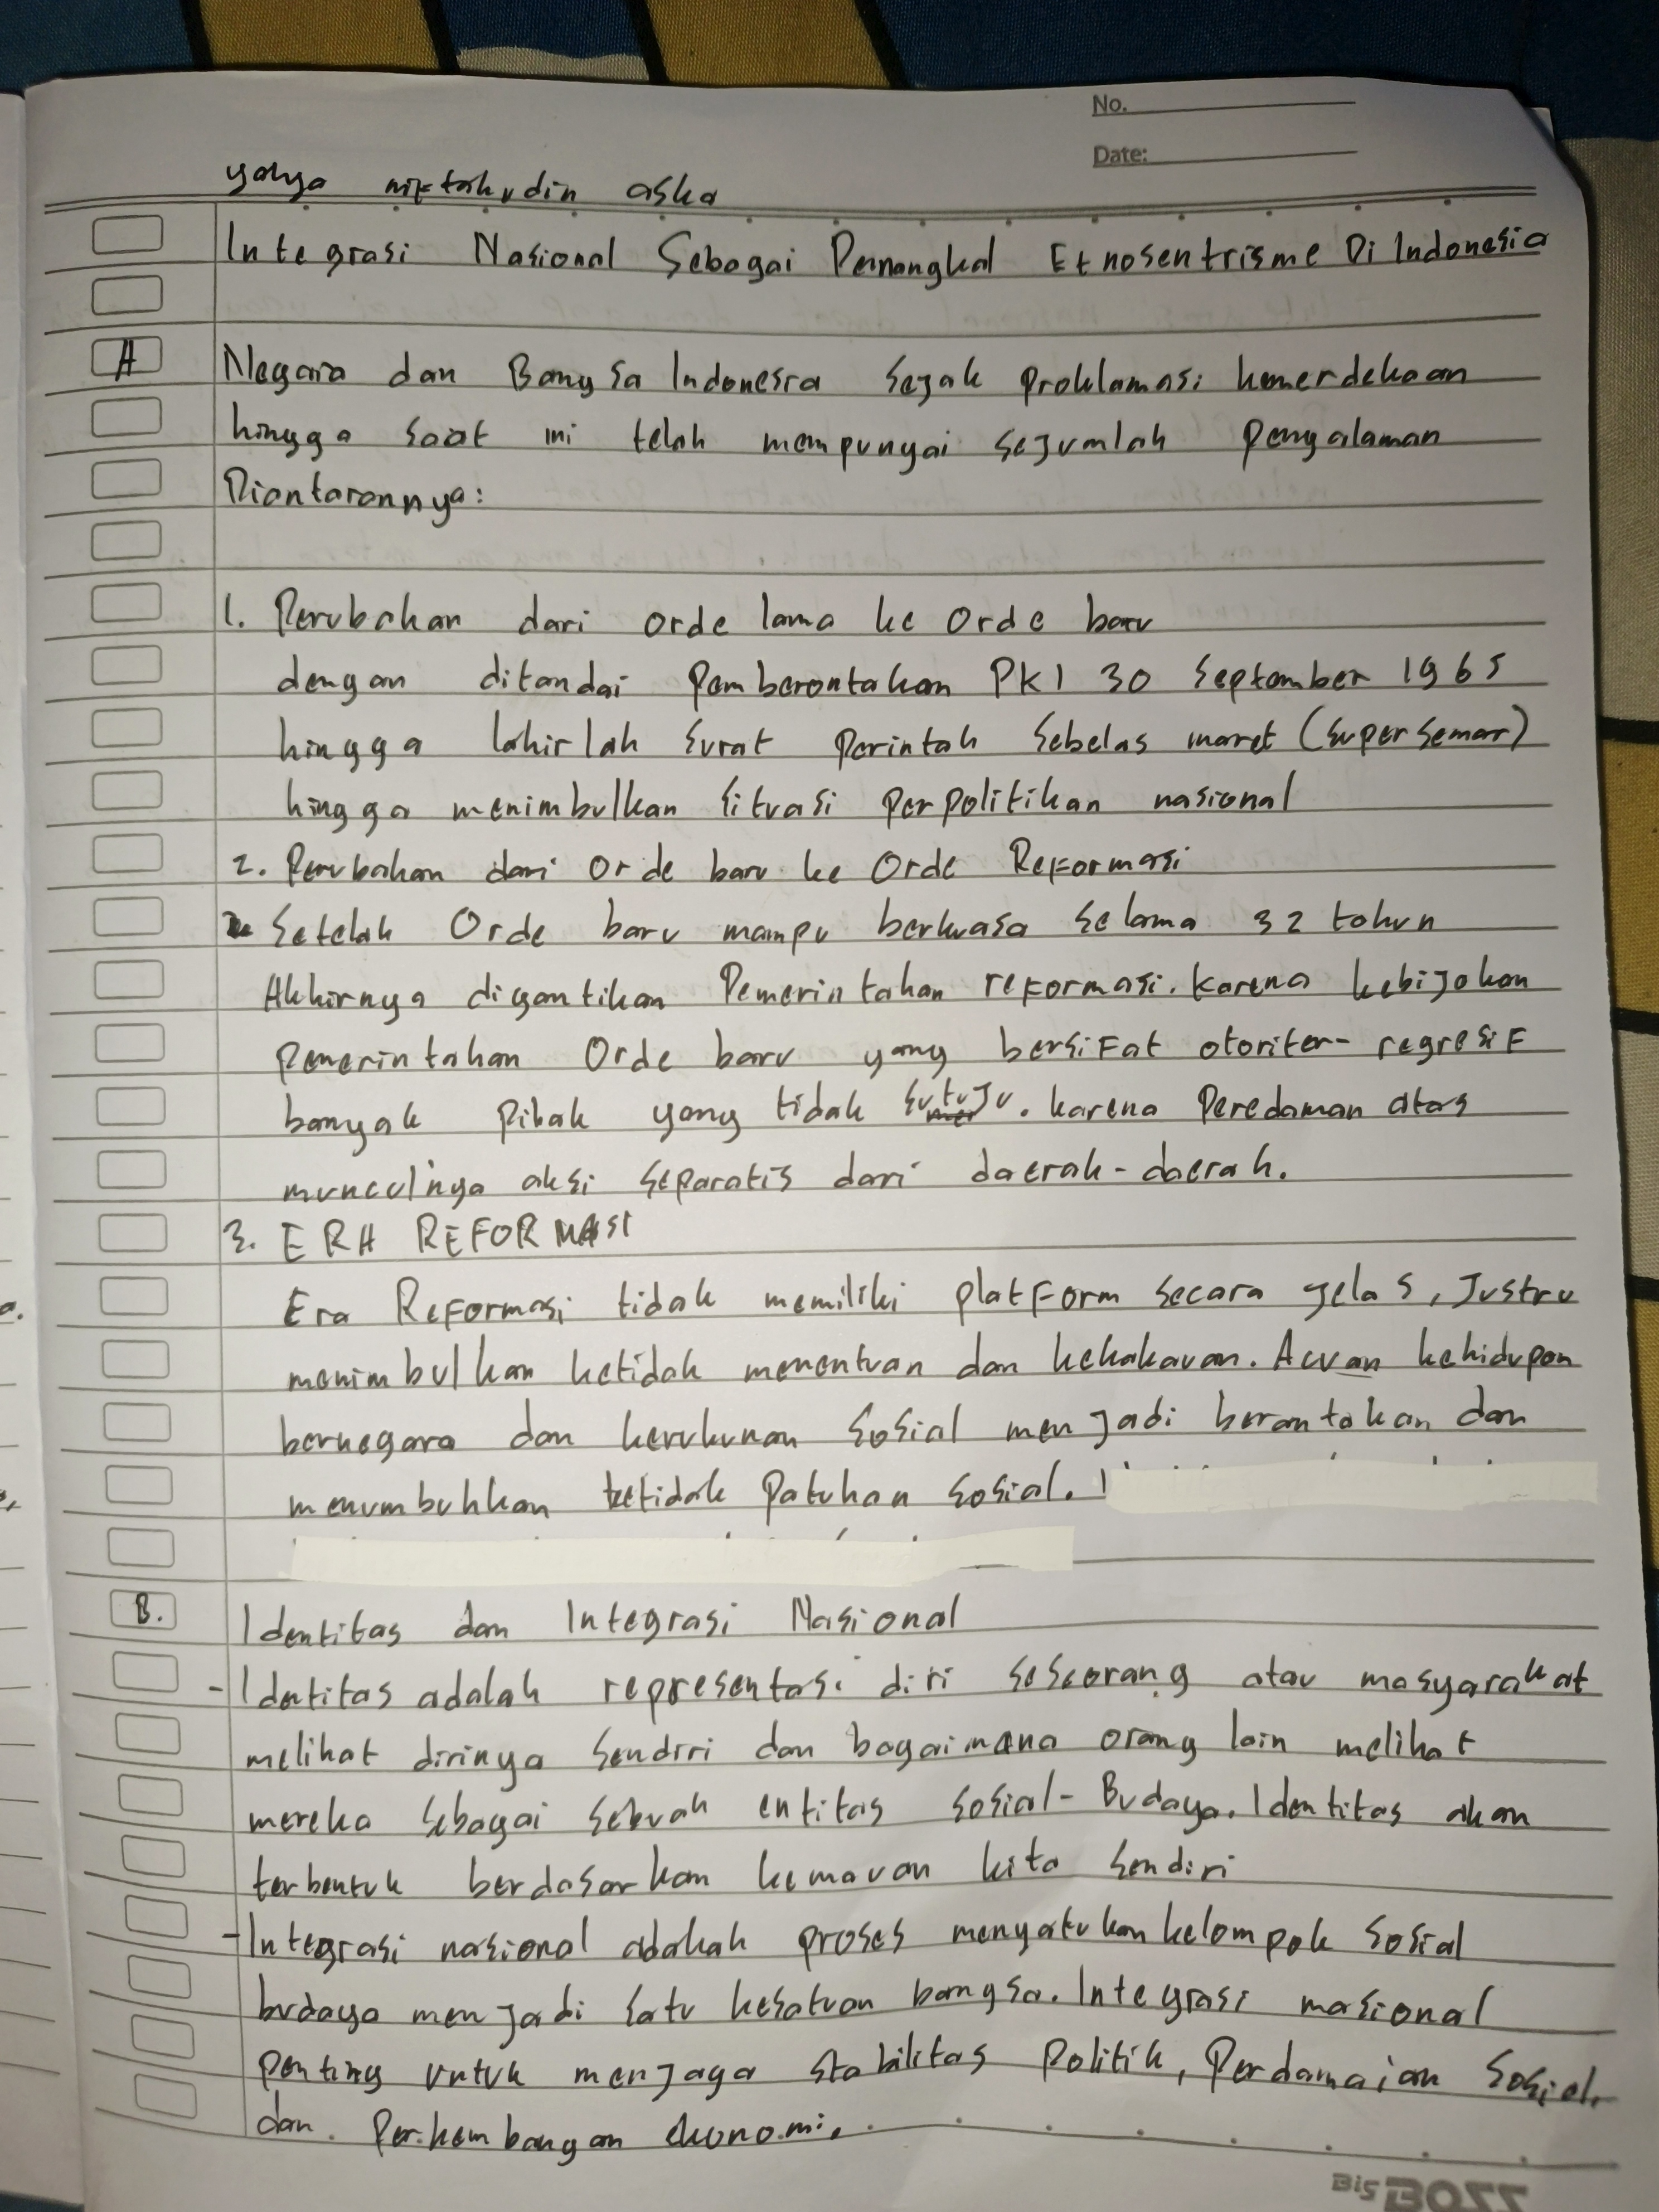 No.
Date:
yahya miftahudin aska
Integrasi Nasional Sebagai Penangkal Etnosentrisme Di Indonesia
A Negara dan Bangsa Indonesia sejak proklamasi kemerdekaan
hingga saat ini telah mempunyai sejumlah pengalaman
Diantarannya:
1. Perubahan dari orde lama ke Orde baru
dengan ditandai pemberontakan PKI 30 September 1965
hingga lahirlah surat perintah sebelas maret (supersemar)
hingga menimbulkan situasi perpolitikan nasional
2. Perubahan dari Orde baru ke Orde Reformasi
Setelah Orde baru mampu berkuasa selama 32 tahun
Akhirnya digantikan Pemerintahan reformasi. karena kebijakan
pemerintahan Orde baru yang bersifat otoriter-regresif
banyak pihak yang tidak sutuju. karena Peredaman atas
munculnya aksi separatis dari daerah-daerah.
3. ERA REFORMASI
Era Reformasi tidak memiliki platform secara jelas, Justru
menimbulkan ketidak menentuan dan kekakauan. Acuan kehidupan
bernegara dan kerukunan sosial menjadi berantakan dan
menumbuhkan ketidak patuhan sosial.
B. Identitas dan Integrasi Nasional
-Identitas adalah representasi diri seseorang atau masyarakat
melihat dirinya sendiri dan bagaimana orang lain melihat
mereka sebagai sebuah entitas sosial-Budaya. Identitas akan
terbentuk berdasarkan kemauan kita sendiri
-Integrasi nasional adakah proses menyatukan kelompok sosial
budaya menjadi satu kesatuan bangsa. Integrasi nasional
penting untuk menjaga stabilitas politik, Perdamaian sosial,
dan Perkembangan ekonomi.
Bis BOSS